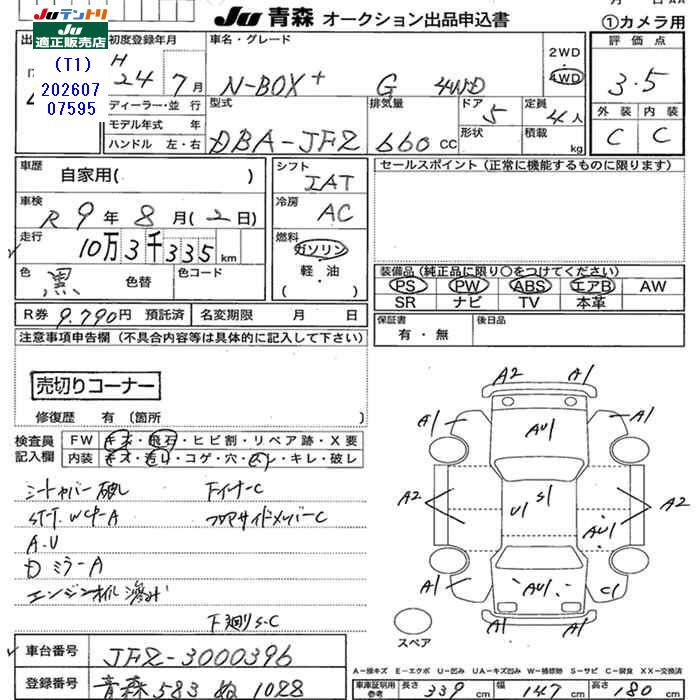 月 日 AA
JUテントリ
適正販売店
(T1)
202607
07595
JU 青森 オークション出品申込書
①カメラ用
初度登録年月
H 24 7月
車名・グレード
N-BOX+ G 4WD
2WD
4WD
評価点
3.5
外装 内装
C C
ディーラー・並行
モデル年式 年
ハンドル 左・右
型式
DBA-JF2
排気量
660 CC
ドア 5
形状
定員 4人
積載 kg
車歴
自家用( )
シフト
IAT
セールスポイント(正常に機能するものに限ります)
車検
R 9年 8月(2日)
冷房
AC
走行
10万3千335km
燃料
ガソリン
軽・油
( )
色
黒
色替
色コード
装備品(純正品に限り○をつけてください)
PS PW ABS エアB AW
SR ナビ TV 本革
R券 9,790円 預託済
名変期限 月 日
保証書
有・無
後日品
注意事項申告欄(不具合内容等は具体的に記入して下さい)
売切りコーナー
修復歴 有(箇所 )
検査員
記入欄
FW キズ・飛石・ヒビ割・リペア跡・X要
内装 キズ・汚れ・コゲ・穴・ ・キレ・破レ
シートカバー破レ
下イナーC
A.U
Dミラー A
フロアサイドメンバーC
下廻りS-C
A2 A1
A1 A1
AU1
A2 A2
U1 S1
AU1
A1 AU1 C1
A1 A1
スペア
車台番号
JF2-3000396
登録番号
青森 583 ぬ 1028
A-線キズ E-エクボ U-凹み UA-キズ凹み W-補修跡 S-サビ C-腐食 XX-交換済
車庫証明用
参考
長さ 339 cm
幅 147 cm
高さ 180 cm